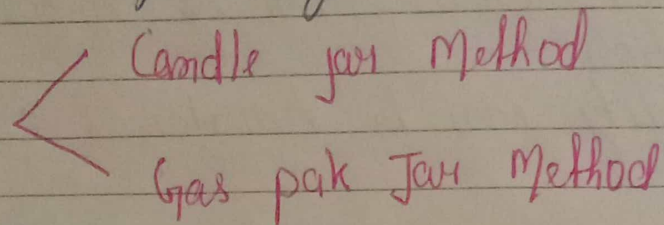 Candle jar Method
Gas pak Jar Method